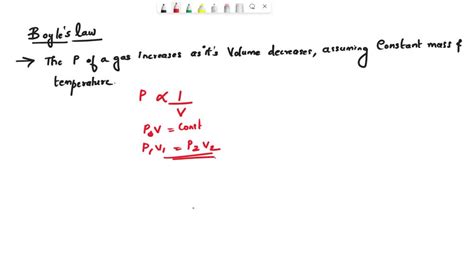 Boyle's law
→ The P of a gas increases as it's Volume decreases, assuming Constant mass &
temperature.
P ∝ 1/V
P.V = Const
P₁V₁ = P₂V₂